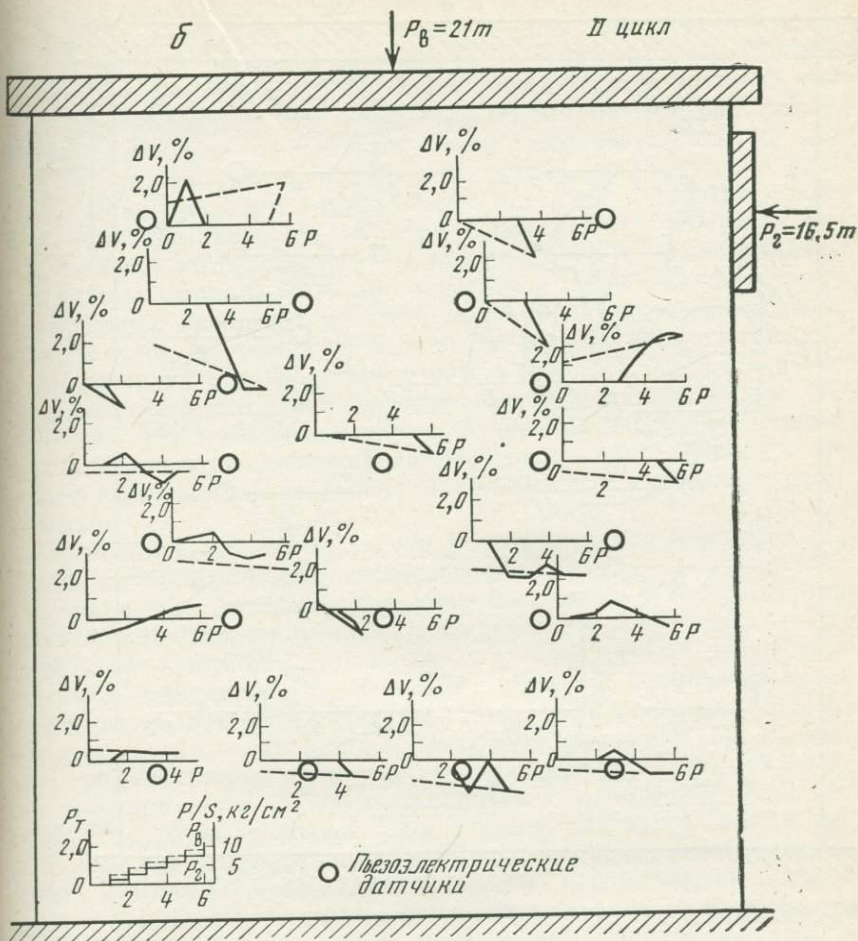 б
P_в=21т
II цикл
P_г=16,5т
ΔV, %
2,0
0 2 4 6 P
ΔV, %
2,0
0 4 6 P
ΔV, %
2,0
0 2 4 6 P
ΔV, %
2,0
0 4 6 P
ΔV, %
2,0
0 4 6 P
ΔV, %
2,0
0 2 4 6 P
2,0
0 2 4 6 P
ΔV, %
2,0
0 2 4 6 P
ΔV, %
2,0
0 2 6 P
ΔV, %
2,0
0 2 6 P
ΔV, %
2,0
0 2 4 6 P
ΔV, %
2,0
0 2 4 6 P
ΔV, %
2,0
0 2 4 6 P
2,0
0 2 4 6 P
ΔV, %
2,0
0 2 4 6 P
ΔV, %
2,0
0 2 4 P
ΔV, %
2,0
0 2 4 6 P
ΔV, %
2,0
0 2 4 6 P
ΔV, %
2,0
0 2 4 6 P
P_т
2,0
0 2 4 6
P/S, кг/см²
P_в 10
P_г 5
Пьезоэлектрические
датчики